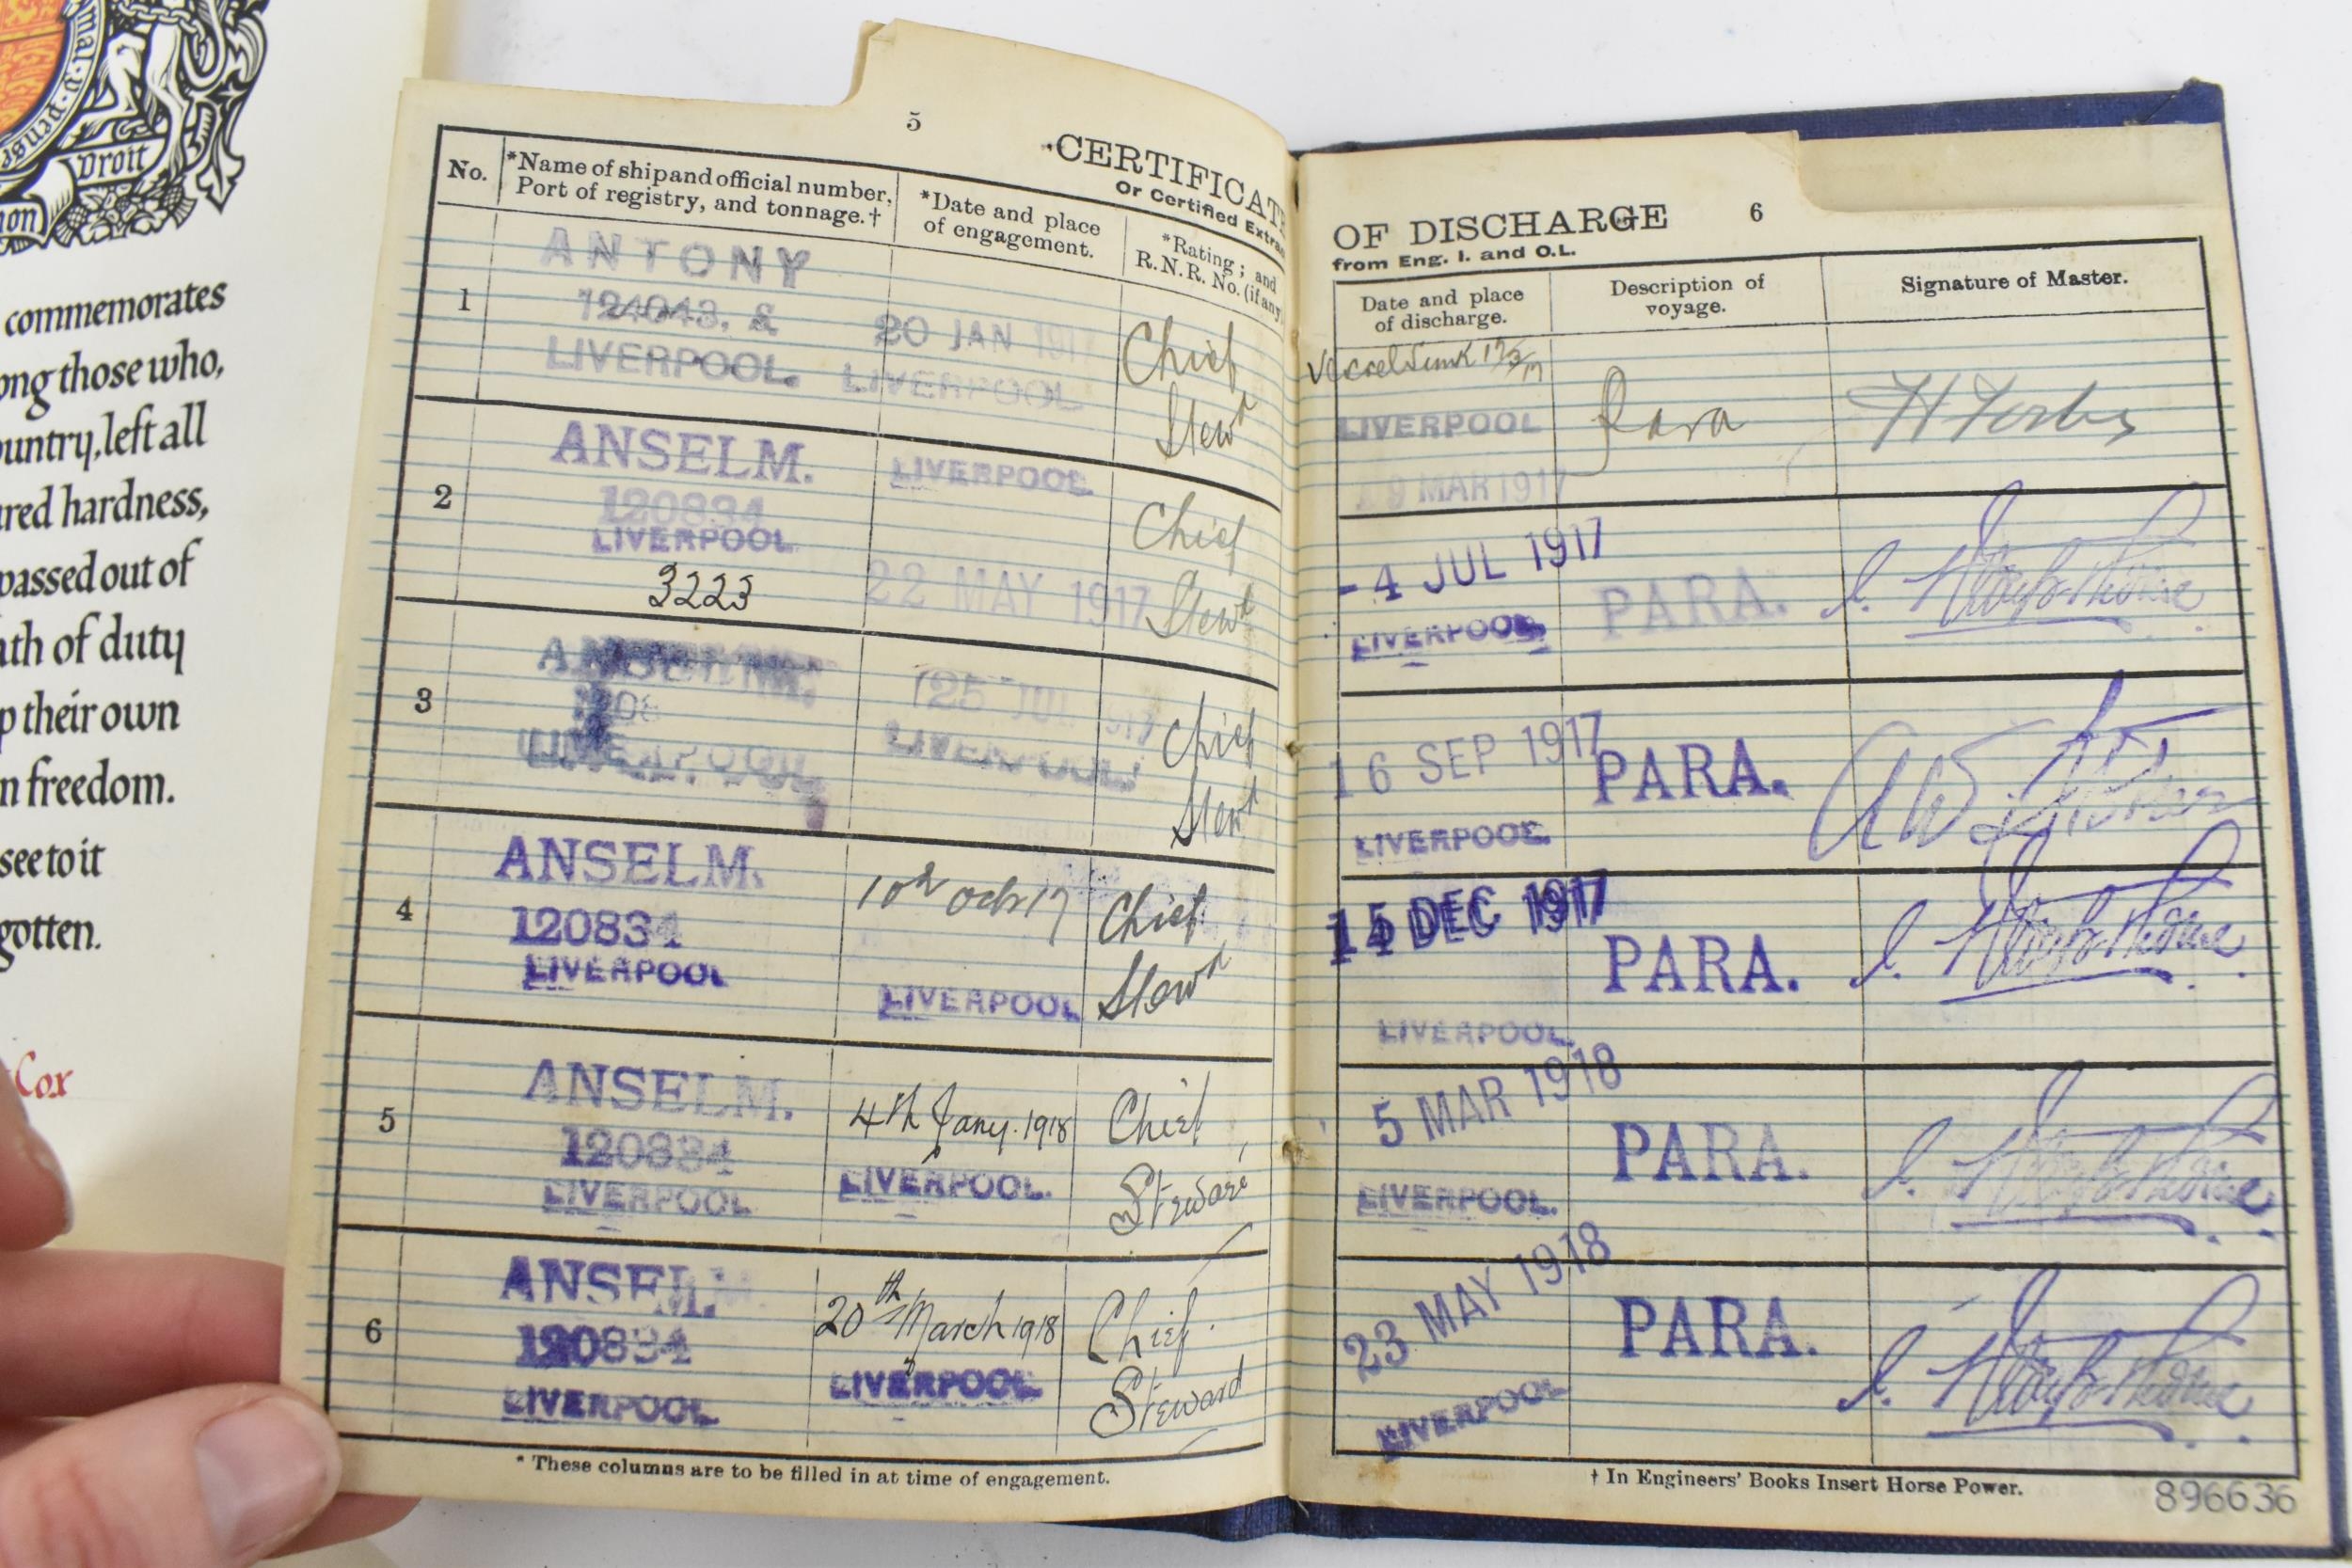 Droit
commemorates
those who,
left all
hardness,
passed out of
of duty
their own
freedom.
see to it
Cox
5
CERTIFICAT
Or Certified Extra
No.
*Name of ship and official number,
Port of registry, and tonnage.†
*Date and place
of engagement.
*Rating; and
R.N.R. No. (if any)
1
ANTONY
LIVERPOOL.
20 JAN 1917
LIVERPOOL
Chief
Stewd
2
ANSELM.
120834
LIVERPOOL
3223
LIVERPOOL.
22 MAY 1917
Chief
Stewd
3
25 JUL 1917
LIVERPOOL
Chief
Stewd
4
ANSELM.
120834
LIVERPOOL
10th Oct 17
LIVERPOOL
Chief
Stewd
5
ANSELM.
120834
LIVERPOOL
4th Jany. 1918
LIVERPOOL.
Chief
Steward
6
ANSELM.
120834
LIVERPOOL
20th March 1918
LIVERPOOL
Chief
Steward
* These columns are to be filled in at time of engagement.
OF DISCHARGE
6
from Eng. 1. and O.L.
Date and place
of discharge.
Description of
voyage.
Signature of Master.
Vessel Sunk
LIVERPOOL
MAR 1917
Para
H Forbes
- 4 JUL 1917
LIVERPOOL
PARA.
16 SEP 1917
LIVERPOOL.
PARA.
DEC 1917
LIVERPOOL
PARA.
5 MAR 1918
LIVERPOOL.
PARA.
23 MAY 1918
LIVERPOOL
PARA.
† In Engineers' Books Insert Horse Power.
896636